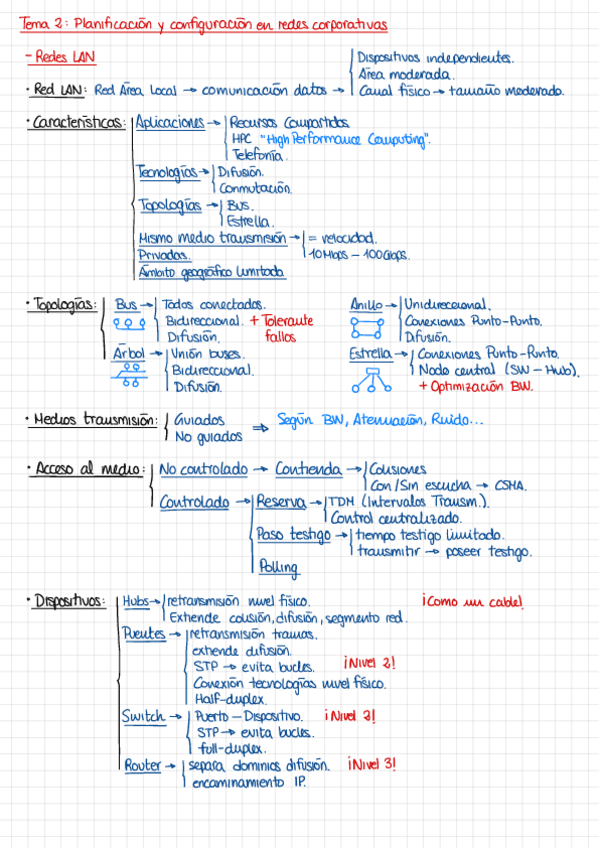 Tema 2: Planificación y configuración en redes corporativas
- Redes LAN
Dispositivos independientes.
Área moderada.
· Red LAN: Red Área Local → comunicación datos → Canal físico → tamaño moderado.
· Características: Aplicaciones → Recursos Compartidos
HPC "High Performance Computing".
Telefonía.
Tecnologías → Difusión.
Conmutación.
Topologías → Bus.
Estrella.
Mismo medio transmisión → = velocidad.
Privadas. 10Mbps - 100Gbps.
Ámbito geográfico limitado
· Topologías: Bus → Todos conectados. Anillo → Unidireccional.
Bidireccional. + Tolerante Conexiones Punto-Punto.
Difusión. fallos Difusión.
Árbol → Unión buses. Estrella → Conexiones Punto-Punto.
Bidireccional. Nodo central (SW - Hub).
Difusión. + Optimización BW.
· Medios transmisión: Guiados ⇒ Según BW, Atenuación, Ruido...
No guiados
· Acceso al medio: No controlado → Contienda → Colisiones
Con/Sin escucha → CSMA.
Controlado → Reserva → TDM (Intervalos Transm.).
Control centralizado.
Paso testigo → tiempo testigo limitado.
transmitir → poseer testigo.
Polling
· Dispositivos: Hubs → retransmisión nivel físico. ¡Como un cable!
Extiende colisión, difusión, segmento red.
Puentes → retransmisión tramas.
extiende difusión.
STP → evita bucles. ¡Nivel 2!
Conexión tecnologías nivel físico.
Half-duplex.
Switch → Puerto - Dispositivo. ¡Nivel 2!
STP → evita bucles.
full-duplex.
Router → separa dominios difusión. ¡Nivel 3!
encaminamiento IP.